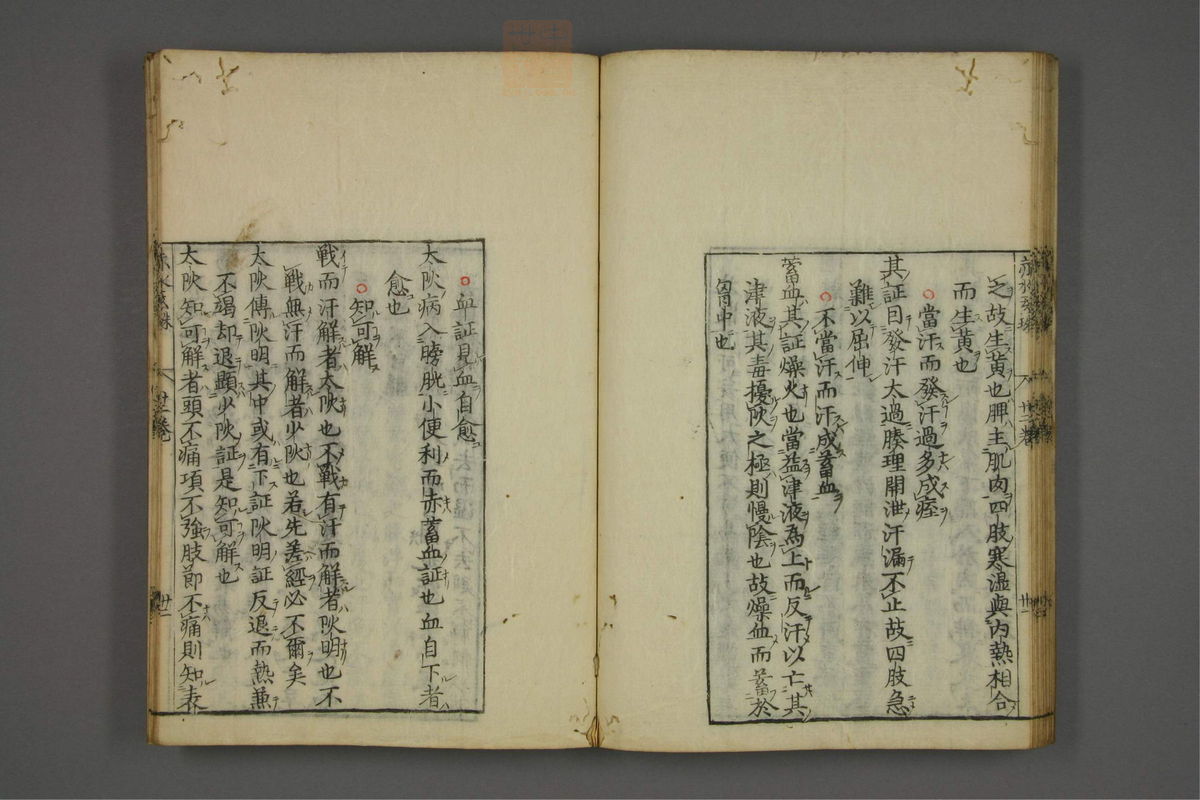 乏故生黄也脾主肌肉四肢寒湿與内熱相合
而生黄也
當汗而發汗過多成痓
其証曰發汗太過腠理開泄汗漏不止故四肢急
難以屈伸
不當汗而汗成蓄血
蓄血其証燥火也當益津液爲上而反汗以亡其
津液其毒擾陽之極則慢陰也故燥血而蓄於
胷中也
血証見血自愈
太陽病入膀胱小便利而赤蓄血証也血自下者
愈也
知可解
戰而汗解者太陽也不戰有汗而解者陽明也不
戰無汗而解者少陽也若先差經必不爾矣
太陽傳陽明其中或有下証陽明証反退而熱兼
不渴却退顯少陽証是知可解也
太陽知可解者頭不痛項不強肢節不痛則知表